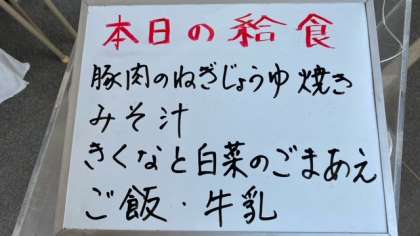 本日の給食
豚肉のねぎじょうゆ焼き
みそ汁
きくなと白菜のごまあえ
ご飯・牛乳